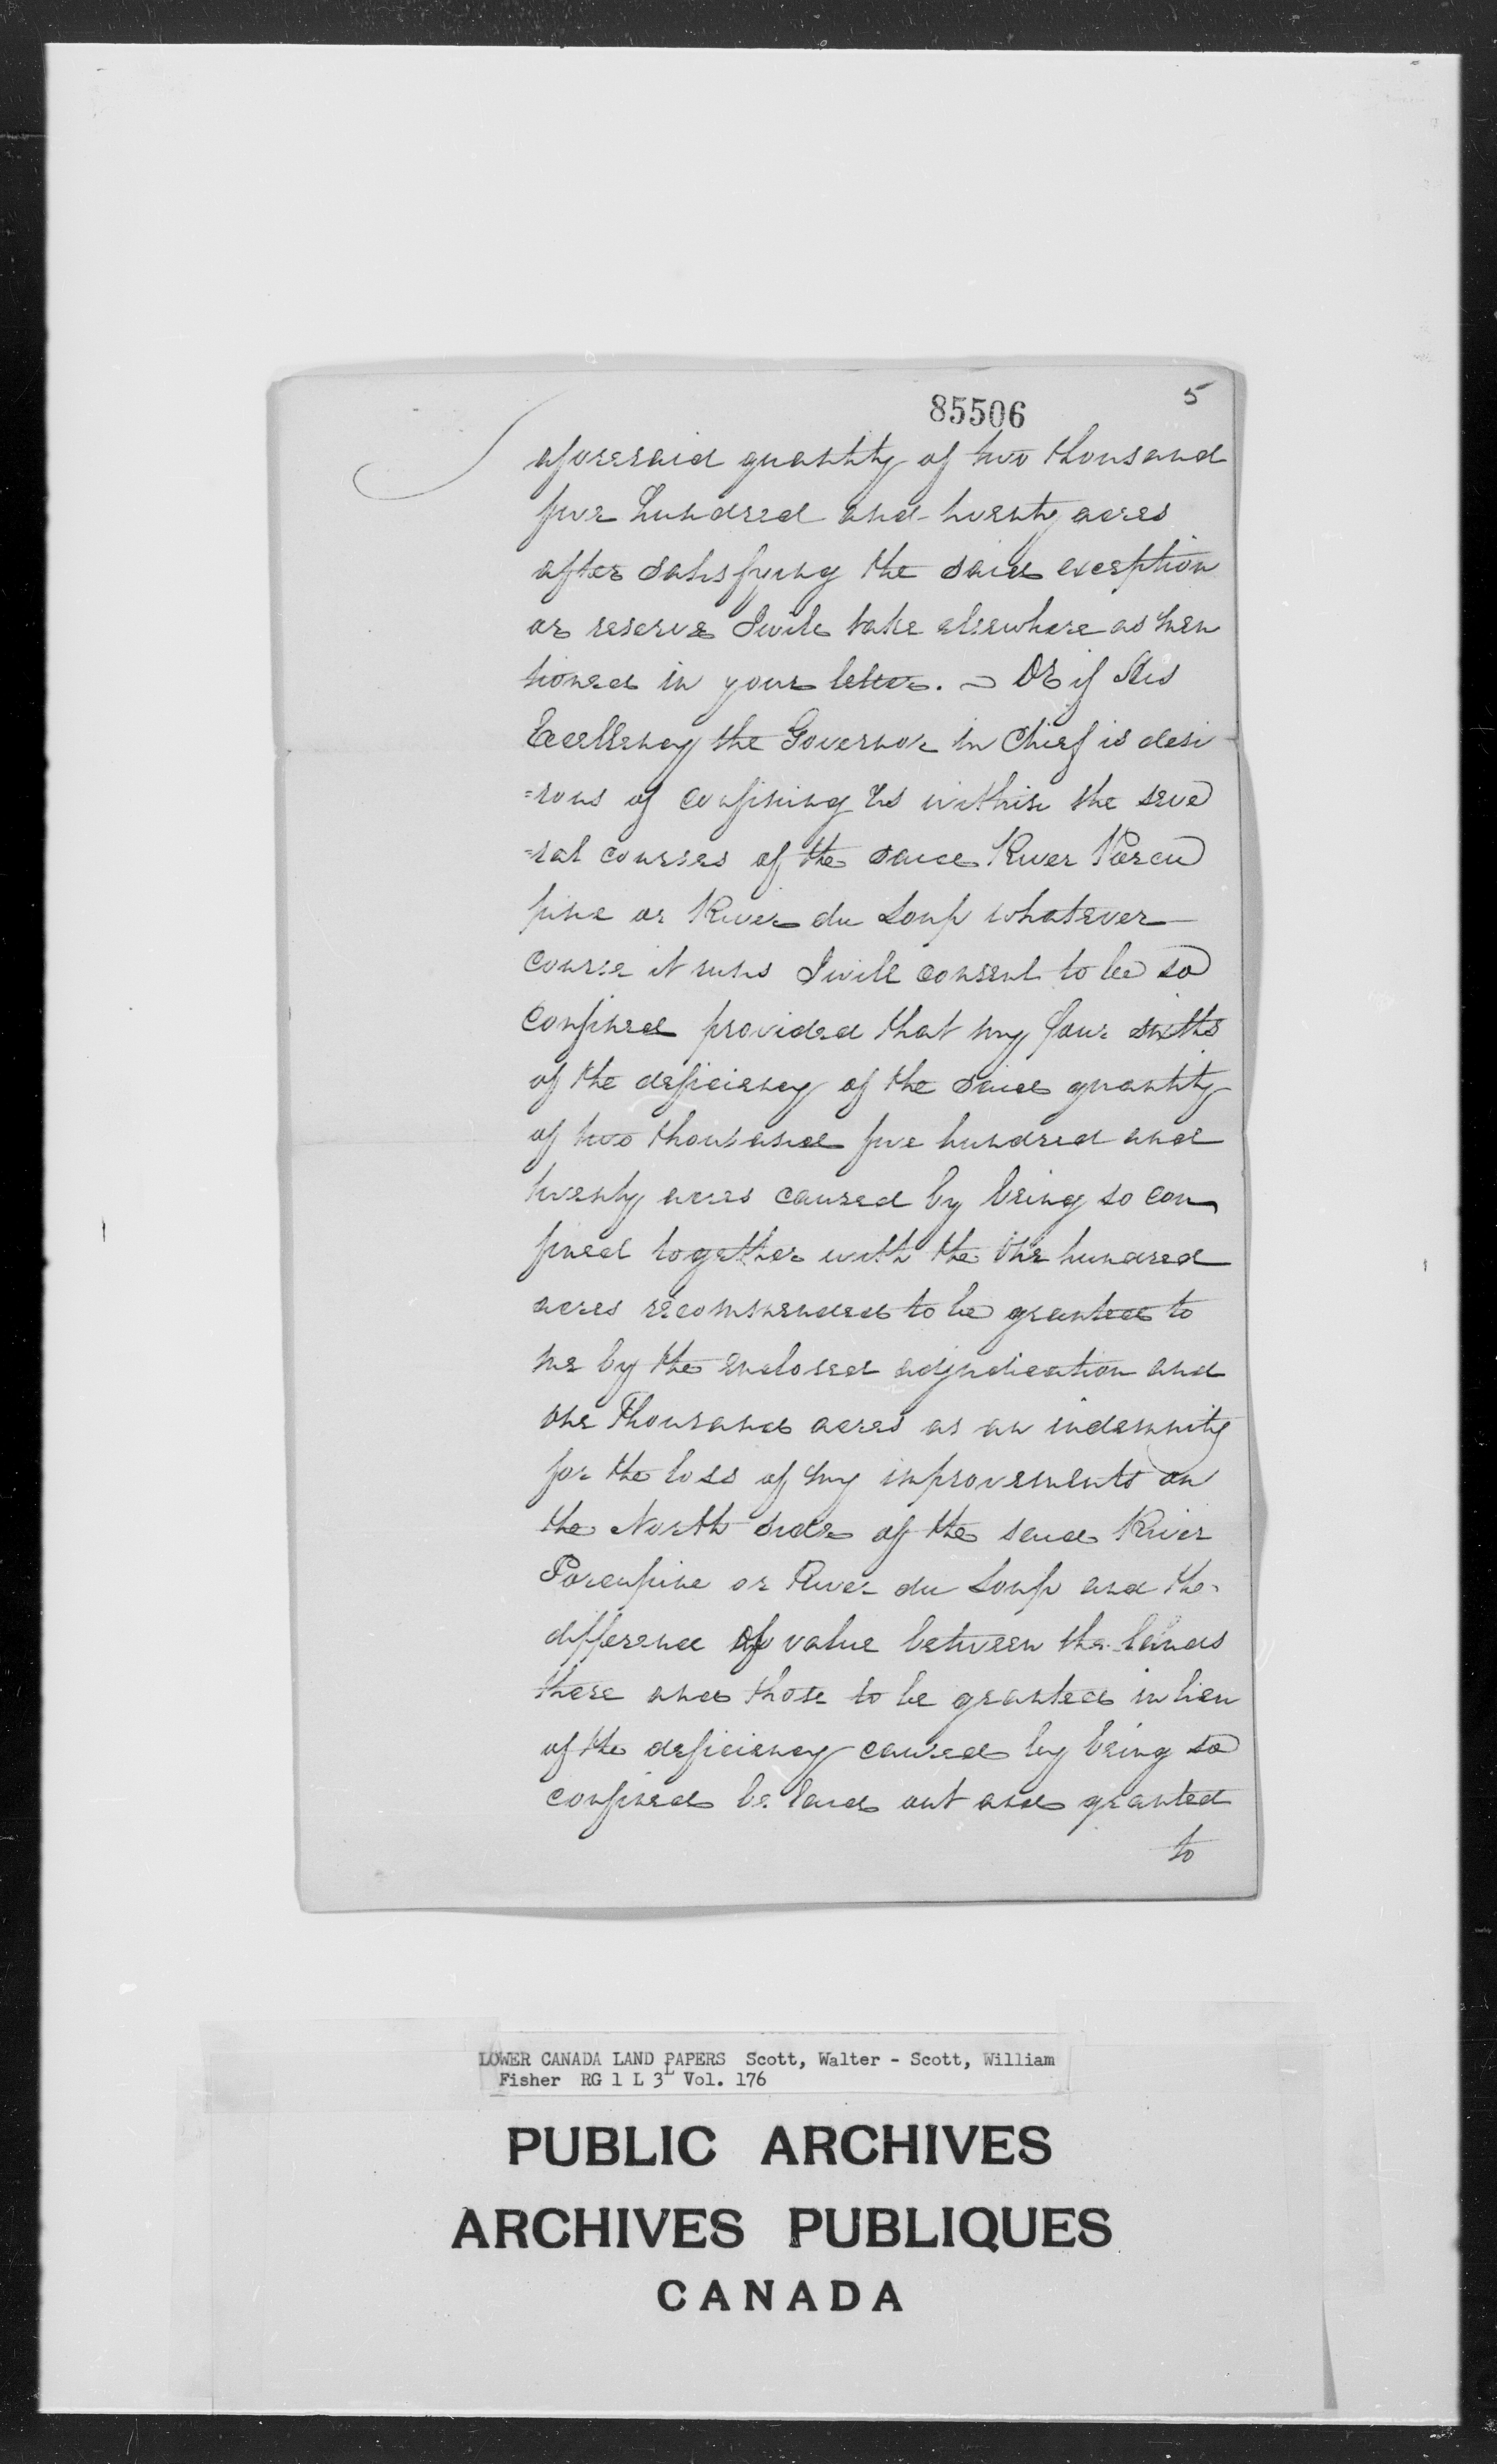 85506
5
aforesaid quantity of two thousand
five hundred and twenty acres
after satisfying the said exception
or reserve I will take elsewhere as men
tioned in your letter. — Or if His
Excellency the Governor in Chief is desi
=rous of confining us within the seve
=ral courses of the said River Porcu
pine or River du Loup whatever
course it runs I will consent to be so
confined provided that my four sixths
of the deficiency of the said quantity
of two thousand five hundred and
twenty acres caused by being so con
fined together with the one hundred
acres recommended to be granted to
me by the enclosed adjudication and
one Thousand acres as an indemnity
for the loss of my improvements on
the North side of the said River
Porcupine or River du Loup and the
difference of value between the lands
there and those to be granted in lieu
of the deficiency caused by being so
confined be laid out and granted
to
LOWER CANADA LAND PAPERS Scott, Walter - Scott, William
Fisher RG 1 L 3L Vol. 176
PUBLIC ARCHIVES
ARCHIVES PUBLIQUES
CANADA